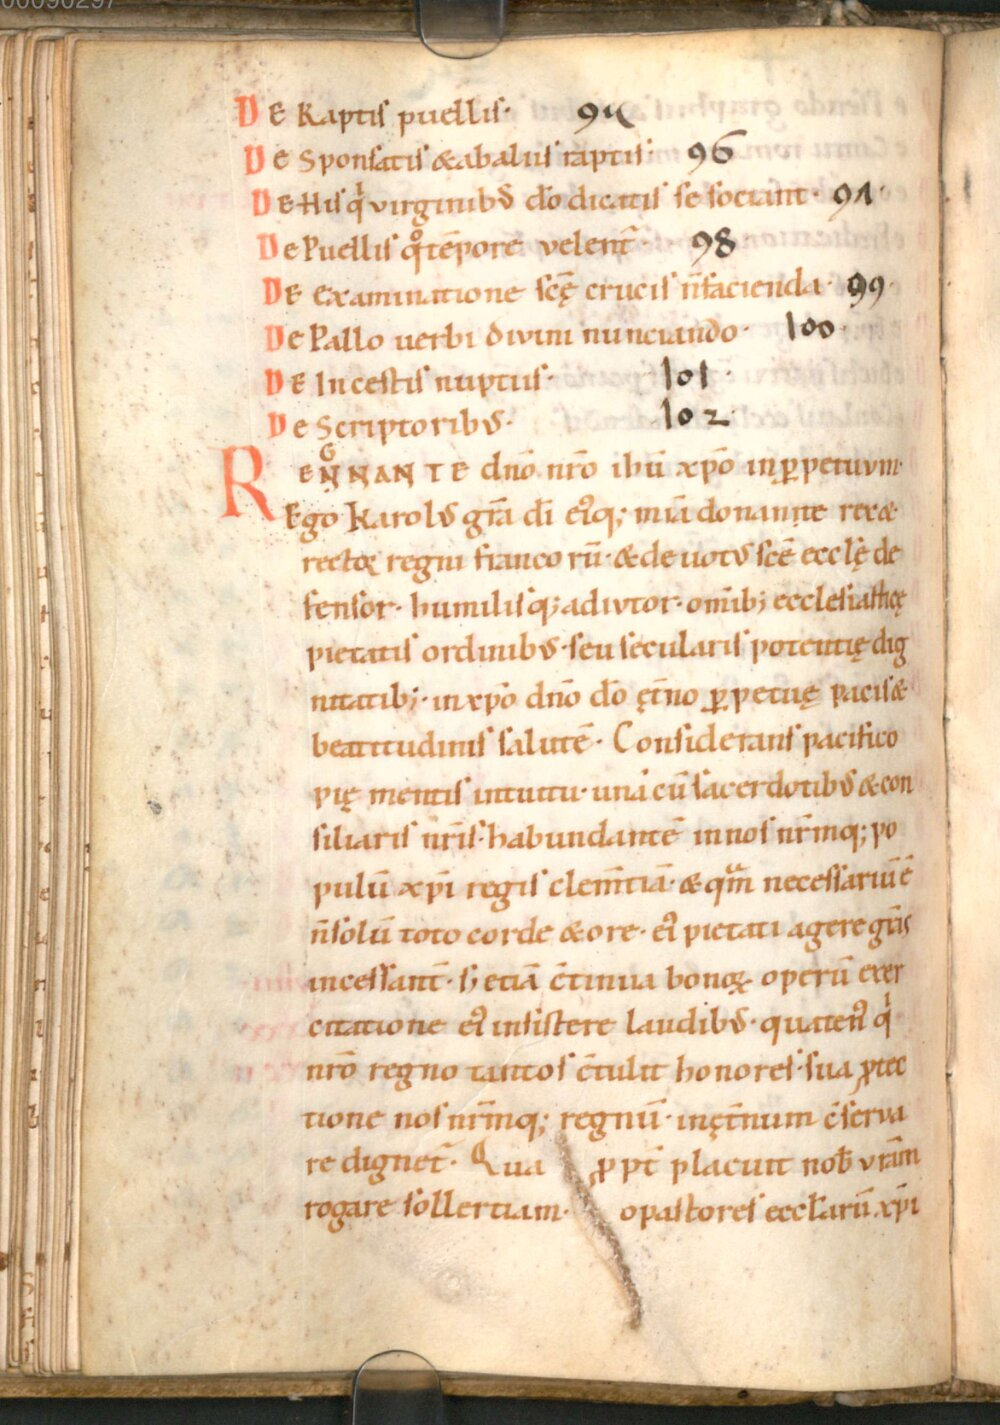 00090297
DE Raptis puellis· 95
De Sponsatis &abaliis raptis· 96
DE His q̇ virginibꝰ dō dicatis se sociant· 97·
De Puellis qͦ tēpore velent̄· 98
DE Examinatione scę̄ crucis n̄ facienda· 99·
De Pallo uerbi divini nunciando· 100·
DE Incestis nuptiis· 101·
De Scriptoribꝰ· 102·
REGNNANTE dn̄o nr̄o ihū xp̄o inꝑpetuum·
Ego Karolꝰ gr̄a dī ei᾽q; mīa donante rex&
rectoꝝ regni francorū· &deuotꝰ scē ecclę̄ de
fensor· humilisq; adiutor· omīb; ecclesiasticę
pietatis ordinibꝰ· seu secularis potentię dig
nitatib;· inxp̄o dn̄o dō ęt̄no ꝑpetuę pacis&
beatitudinis salutē· Considerans pacifico
pię mentis intuitu· una cū sacerdotibꝰ &con
siliaris nr̄is· habundantē innos nr̄mq; po
pulū xp̄i regis clem̄tiā· &qᵃm necessariū ē
n̄solū toto corde &ore· ei᾽ pietati agere gr̄as
incessant̄· s; etiā c̄tinua bonoꝝ operū exer
citatione ei᾽ insistere laudibꝰ· quaten᾽ q̇
nr̄o regno tantos c̄tulit honores· sua ꝓtec
tione nos nr̄mq; regnū· inęt̄num c̄serva
re dignet̄· Qua ꝓpt̄ placuit nob̄ vr̄am
rogare sollertiam· opastores eccl̄arū xp̄i